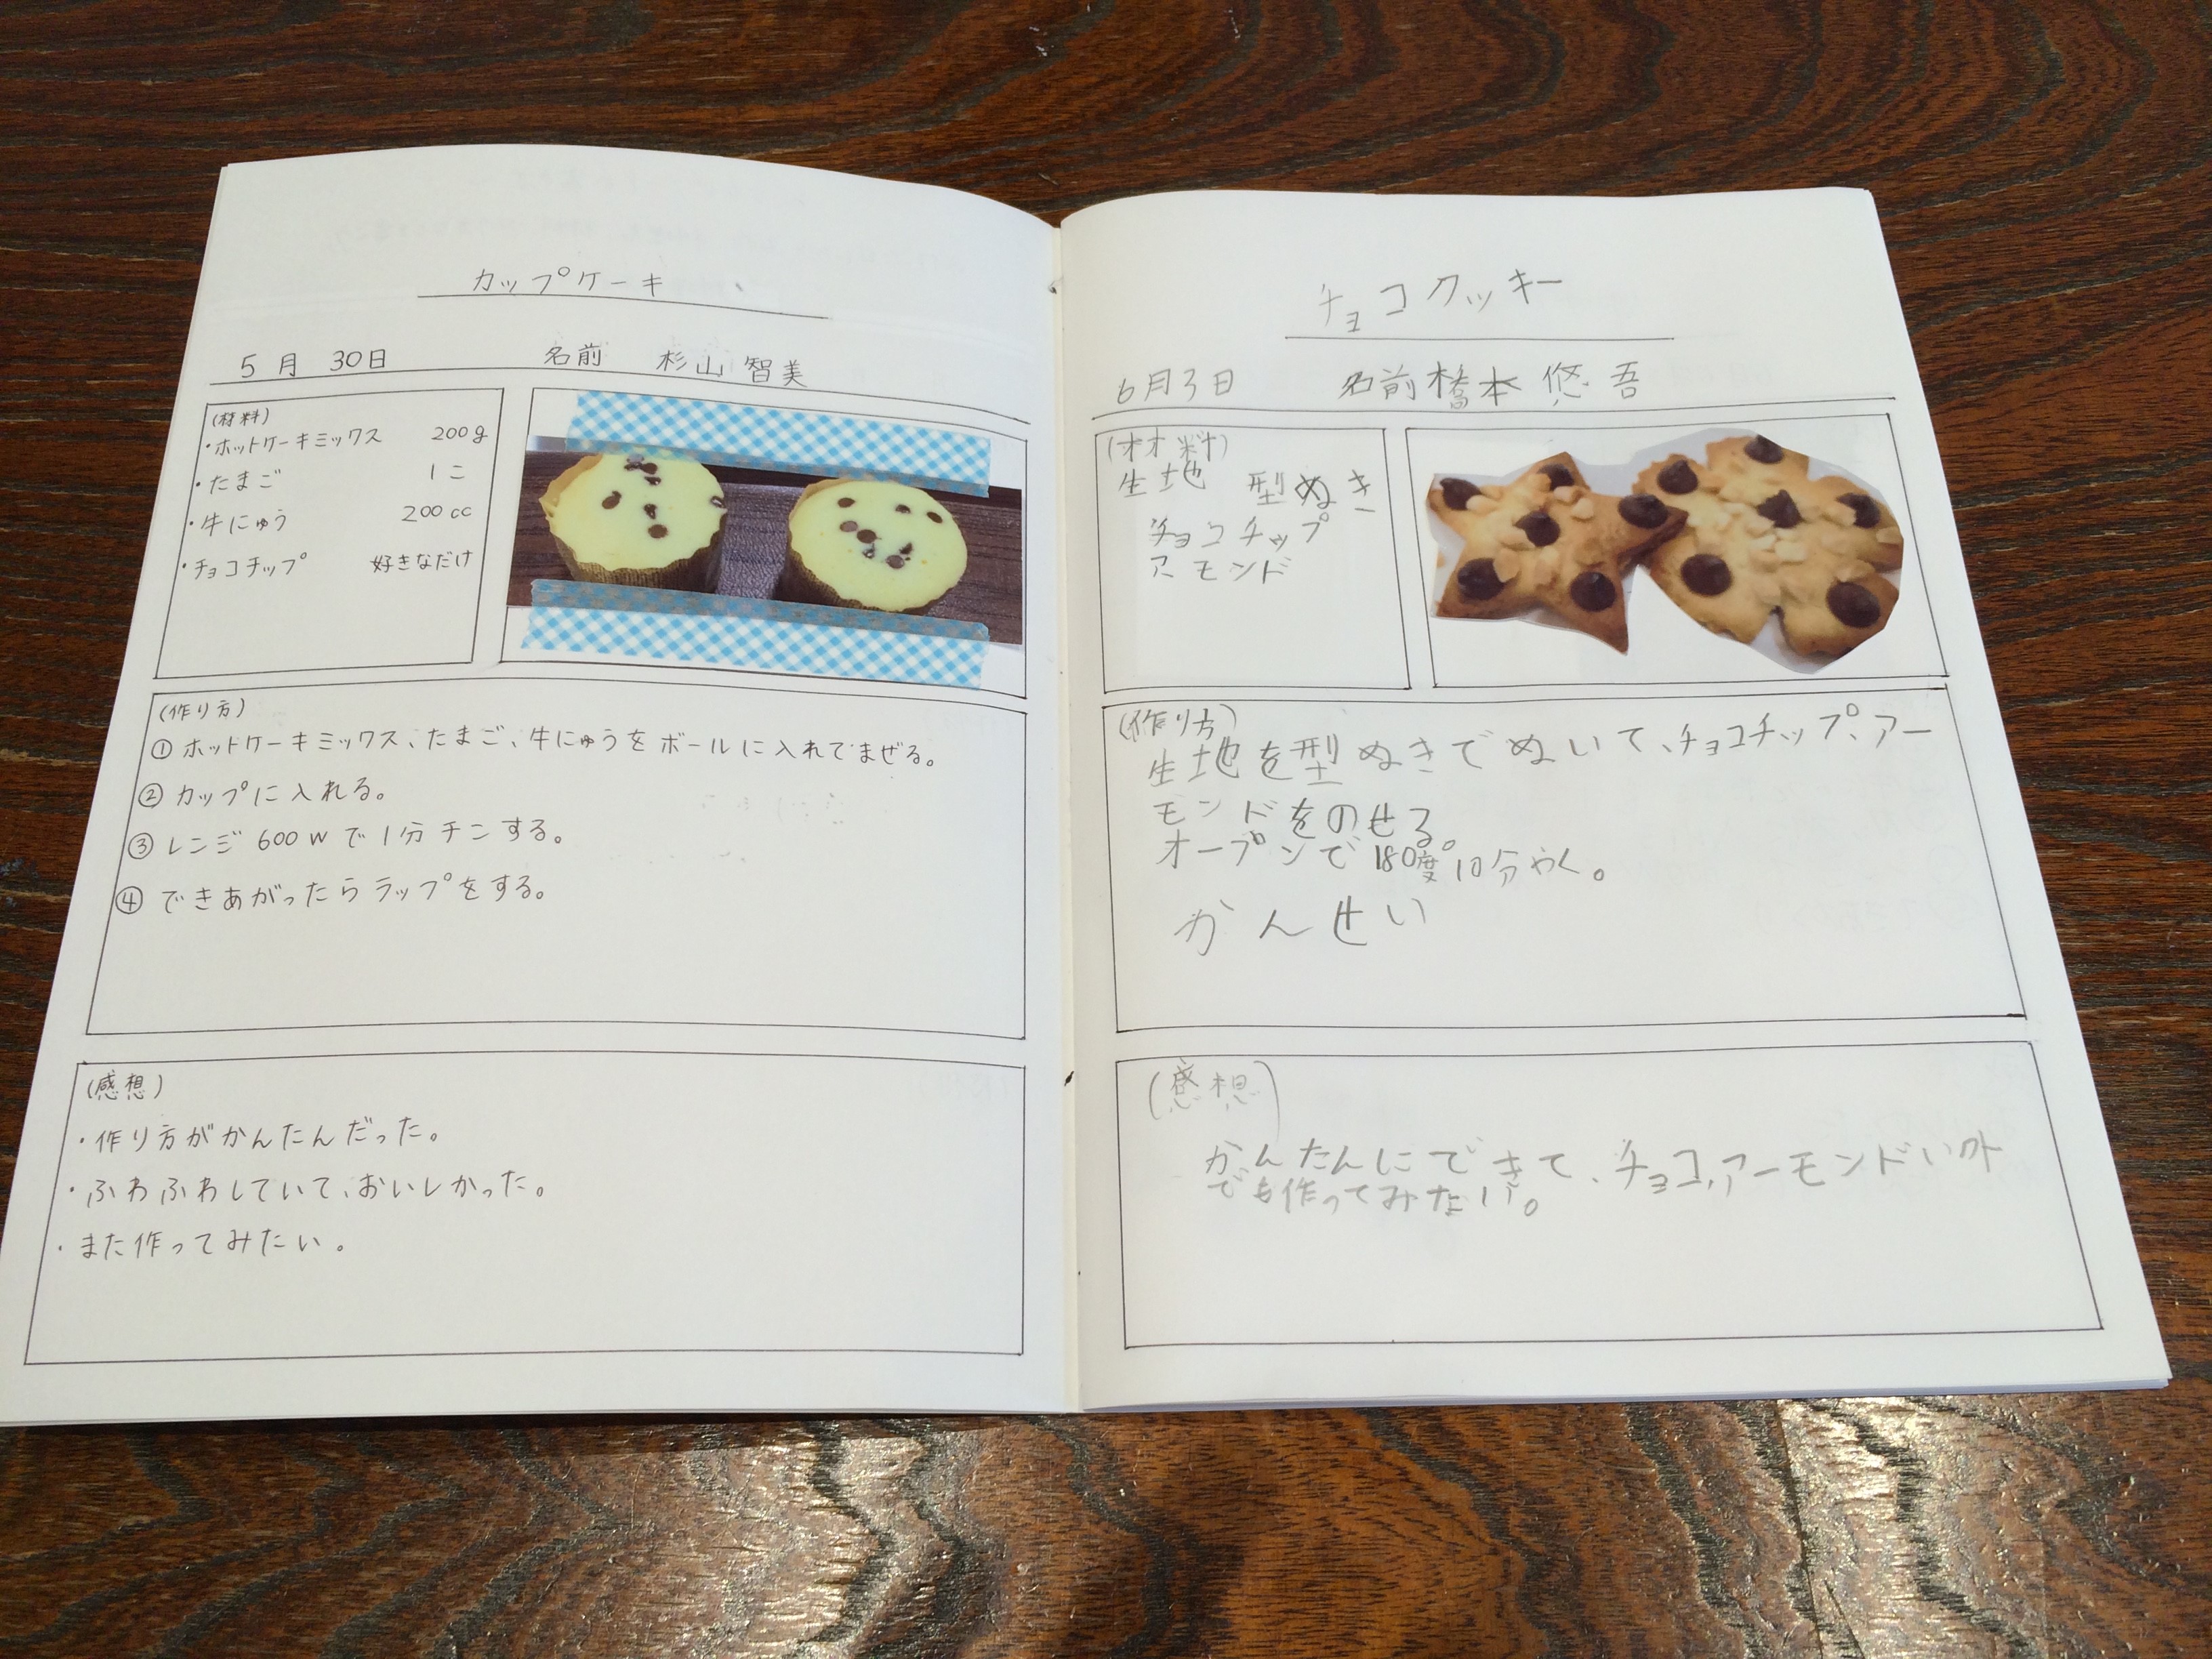 カップケーキ
5月 30日 名前 杉山 智美
(材料)
・ホットケーキミックス 200g
・たまご 1こ
・牛にゅう 200cc
・チョコチップ 好きなだけ
(作り方)
① ホットケーキミックス、たまご、牛にゅうをボールに入れてまぜる。
② カップに入れる。
③ レンジ 600wで1分チンする。
④ できあがったらラップをする。
(感想)
・作り方がかんたんだった。
・ふわふわしていて、おいしかった。
・また作ってみたい。
チョコクッキー
6月3日 名前 橋本 悠吾
(材料)
生地 型ぬき
チョコチップ
アーモンド
(作り方)
生地を型ぬきでぬいて、チョコチップ、アー
モンドをのせる。
オーブンで180度10分やく。
かんせい
(感想)
かんたんにできて、チョコ、アーモンドい外
でも作ってみたい。